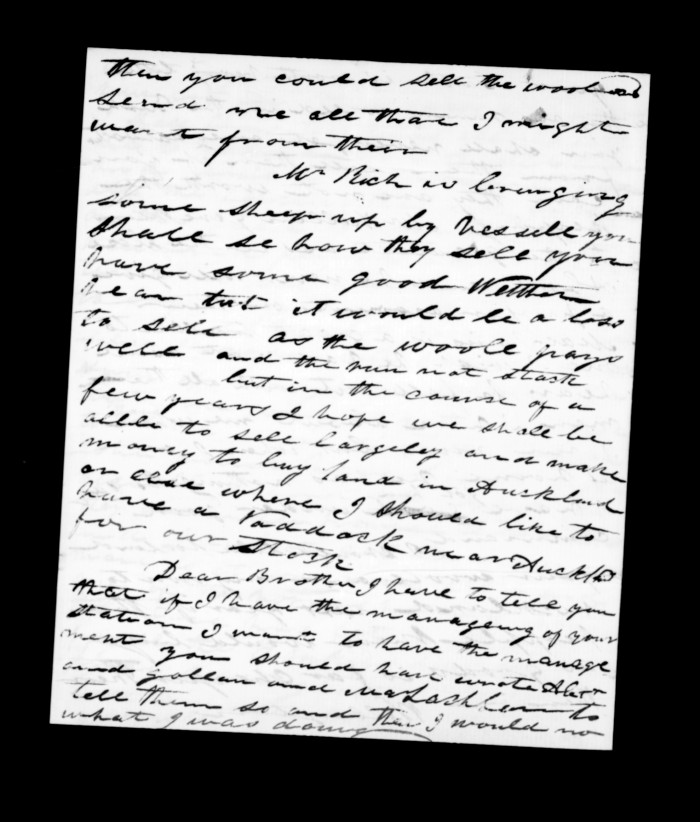 then you could sell the wool and
send me all that I might
want from their
Mr Rich is bringing
some sheep up by Vessell you
shall se how they sell you
have some good Wethers
hear but it would be a loss
to sell as the woole pays
well and the run not stock
but in the course of a
few years I hope we shall be
able to sell largely and make
money to buy land in Auckland
or else where I should like to
have a Paddock near Auckld
for our Stock
Dear Brother I have to tell you
that if I have the manageing of your
station I want to have the manage
ment you should have wrote Alexr
and Gollan and to
tell them so and then I would no
what I was doing